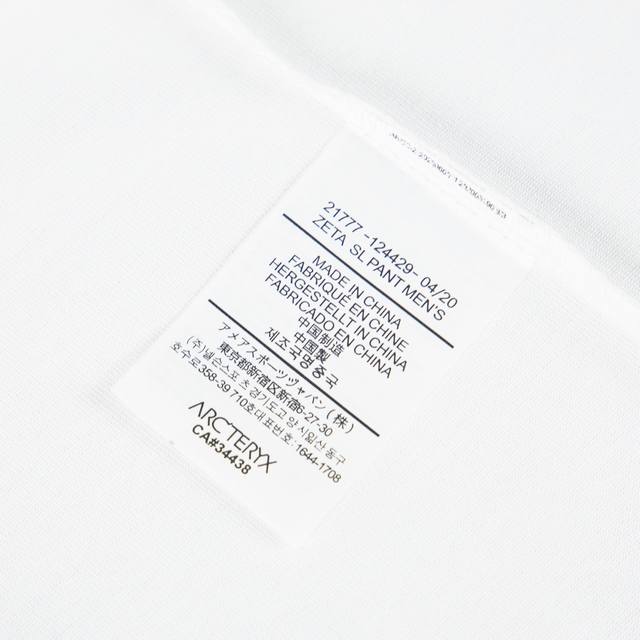 21777-124429-04/20
ZETA SL PANT MEN'S
MADE IN CHINA
FABRIQUÉ EN CHINE
HERGESTELLT IN CHINA
FABRICADO EN CHINA
中国制造
中国製
제조국명중국
アメアスポーツジャパン(株)
東京都新宿区新宿6-27-30
(주)넬슨스포츠 경기도고양시일산동구
호수로358-39 710호대표번호:1644-1708
ARC'TERYX
CA#34438